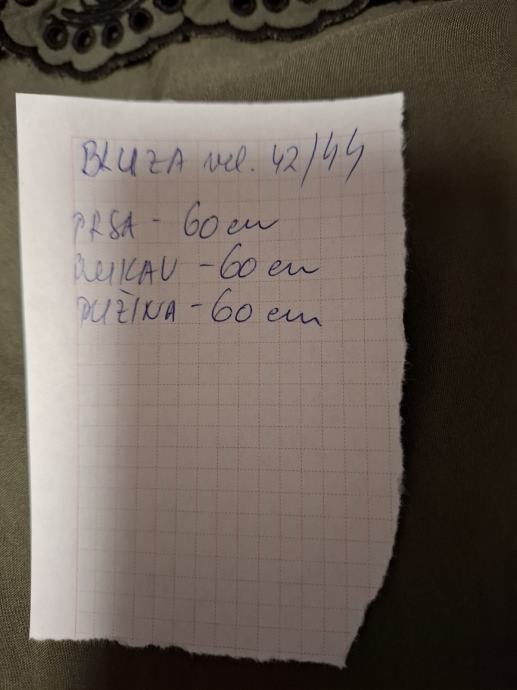 BLUZA vel. 42/44
PRSA - 60 cm
RUKAV - 60 cm
DUŽINA - 60 cm